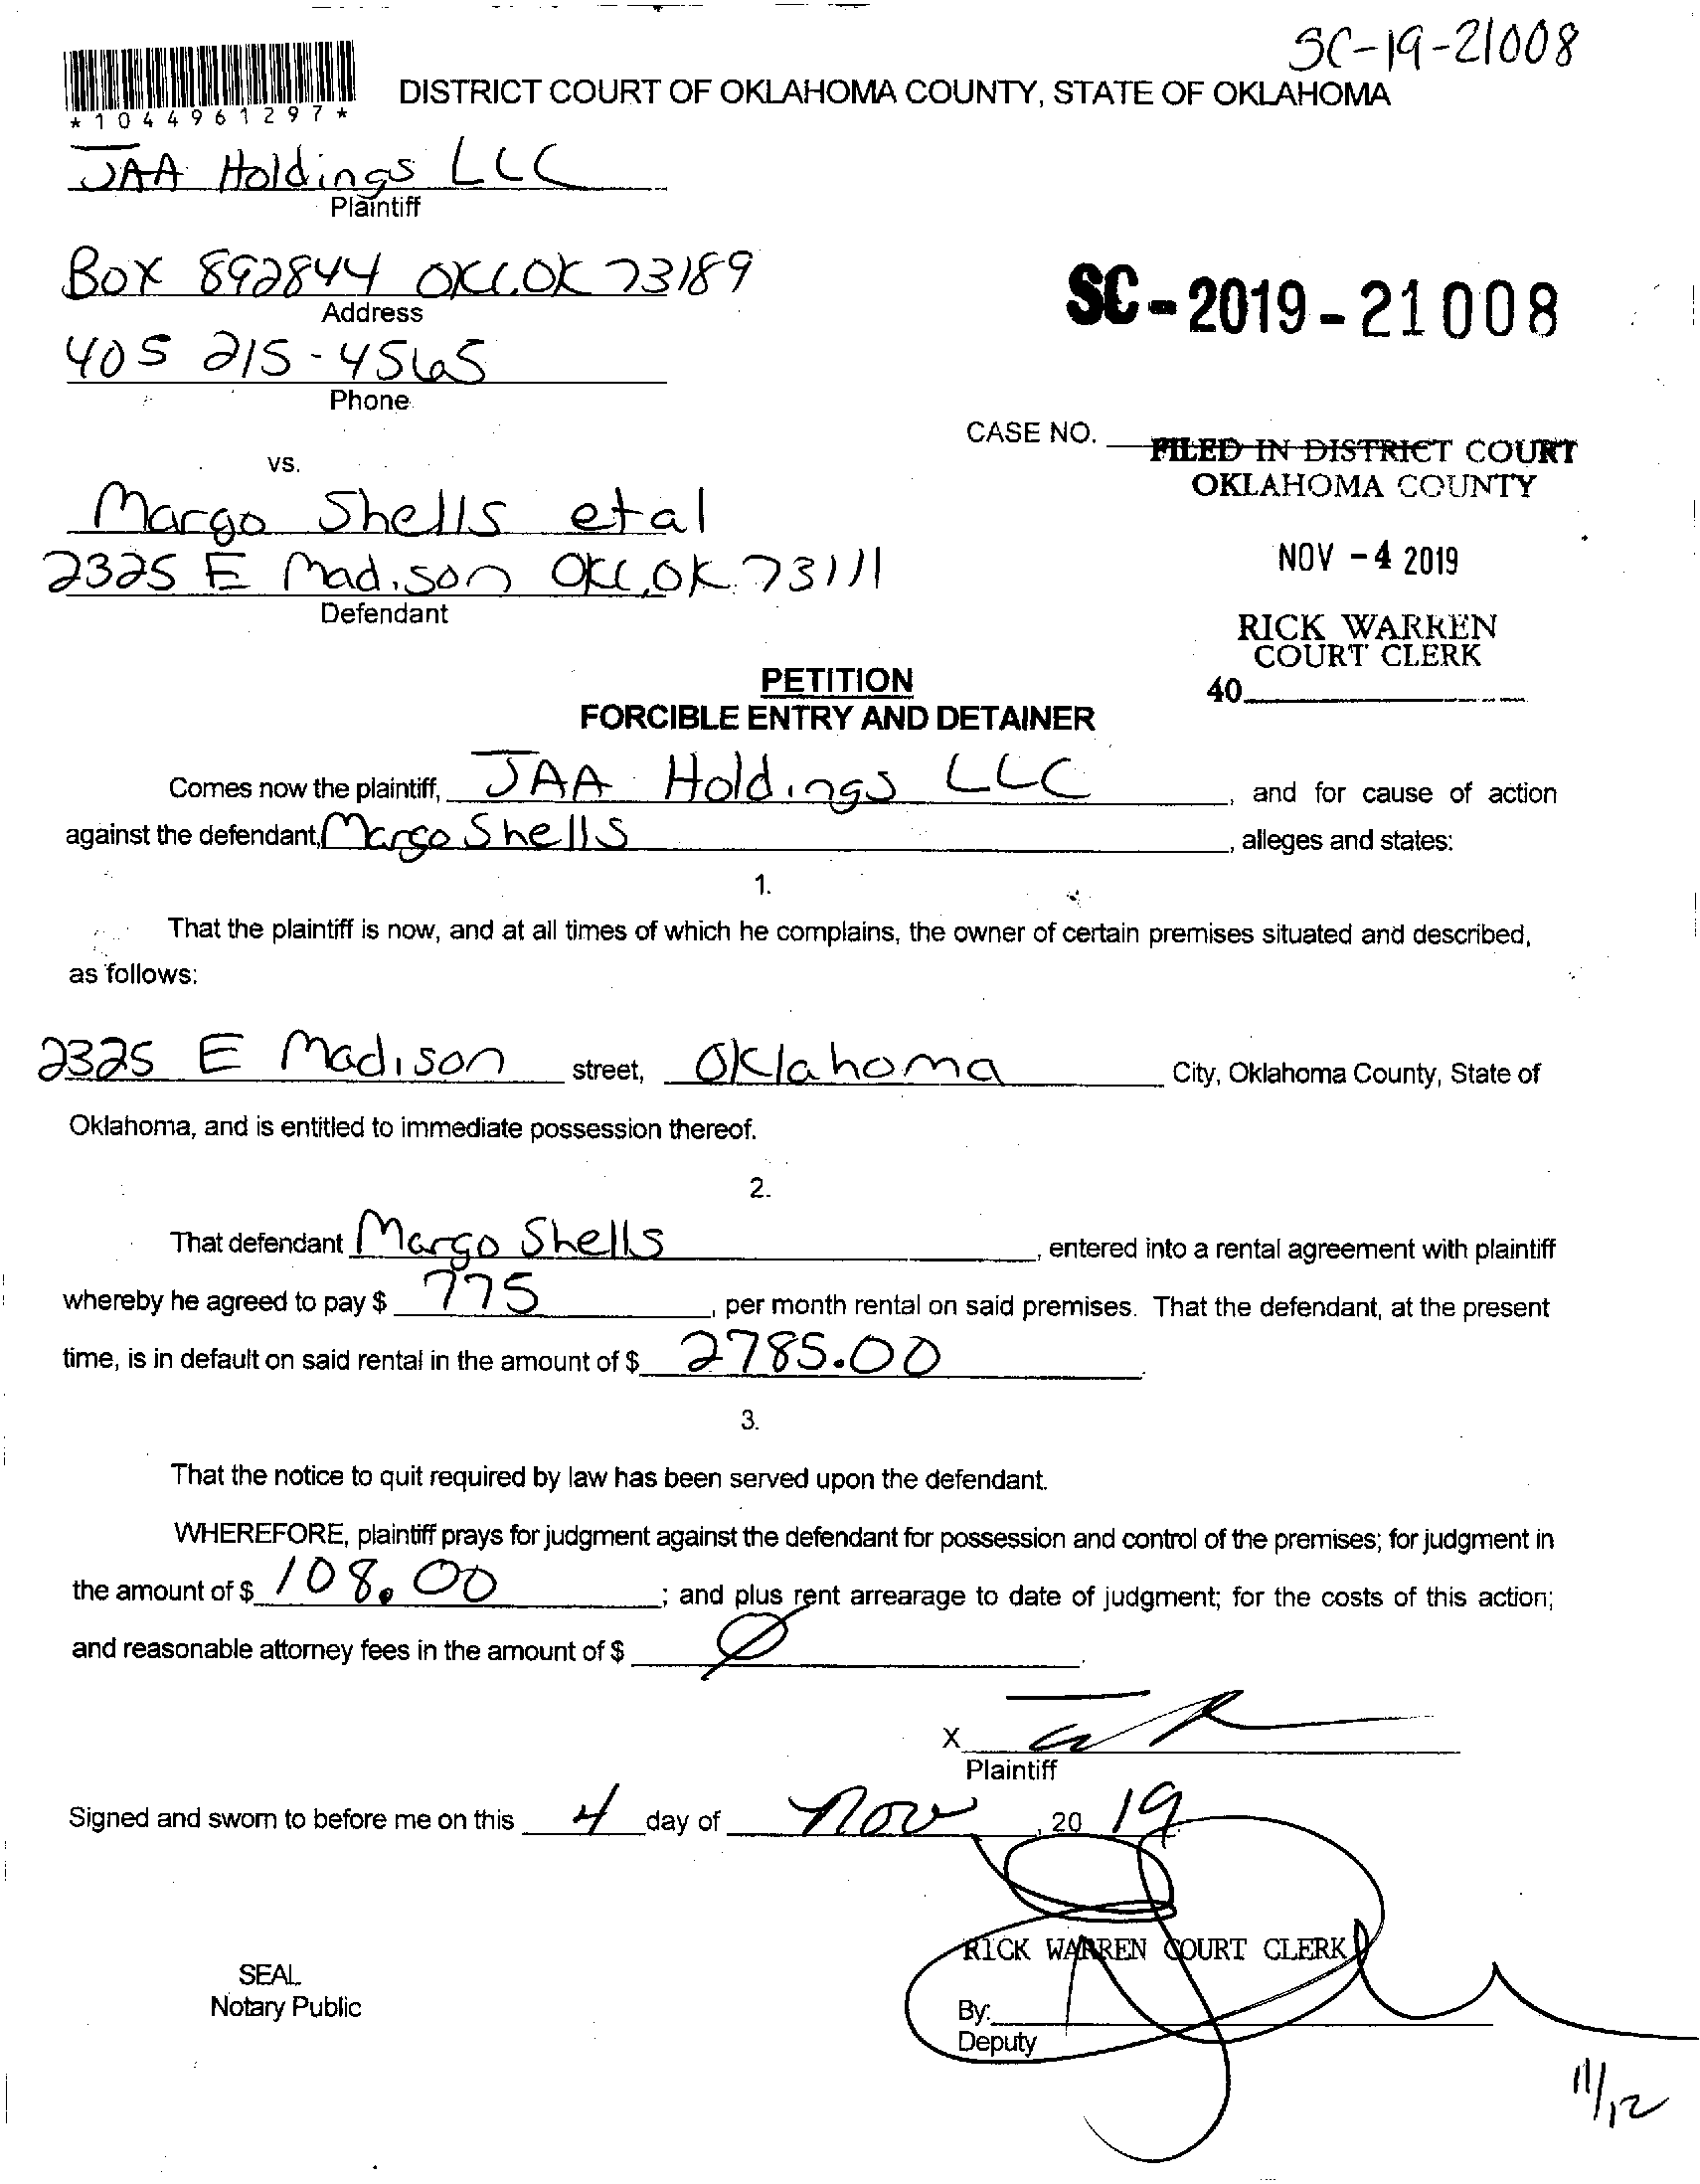 SC-19-21008
*1044961297*
DISTRICT COURT OF OKLAHOMA COUNTY, STATE OF OKLAHOMA
JAA Holdings LLC
Plaintiff
Box 892844 OKC.OK 73189
Address
SC-2019-21008
405 215-4565
Phone
CASE NO.
FILED IN DISTRICT COURT
OKLAHOMA COUNTY
vs.
Margo Shells et al
2325 E Madison OKC,OK 73111
Defendant
NOV -4 2019
RICK WARREN
COURT CLERK
40
PETITION
FORCIBLE ENTRY AND DETAINER
Comes now the plaintiff, JAA Holdings LLC, and for cause of action
against the defendant, Margo Shells, alleges and states:
1.
That the plaintiff is now, and at all times of which he complains, the owner of certain premises situated and described,
as follows:
2325 E Madison street, Oklahoma City, Oklahoma County, State of
Oklahoma, and is entitled to immediate possession thereof.
2.
That defendant Margo Shells, entered into a rental agreement with plaintiff
whereby he agreed to pay $ 775, per month rental on said premises. That the defendant, at the present
time, is in default on said rental in the amount of $ 2785.00
3.
That the notice to quit required by law has been served upon the defendant.
WHEREFORE, plaintiff prays for judgment against the defendant for possession and control of the premises; for judgment in
the amount of $ 108.00; and plus rent arrearage to date of judgment; for the costs of this action;
and reasonable attorney fees in the amount of $ Ø.
X
Plaintiff
Signed and sworn to before me on this 4 day of Nov, 20 19
RICK WARREN COURT CLERK
SEAL
Notary Public
By:
Deputy
11/12